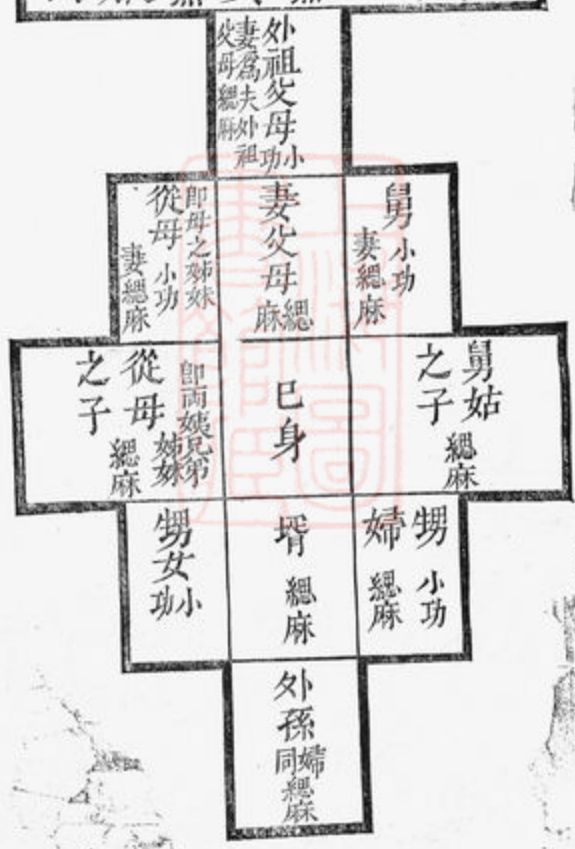 外祖父母小功
妻為夫外祖
父母緦麻
舅小功
妻緦麻
妻父母緦麻
即母之姊妹
從母小功
妻緦麻
舅姑
之子
緦麻
己身
即兩姨兄弟
姊妹
從母
之子
緦麻
甥小功
婦緦麻
壻緦麻
甥女小功
外孫
婦同
緦麻